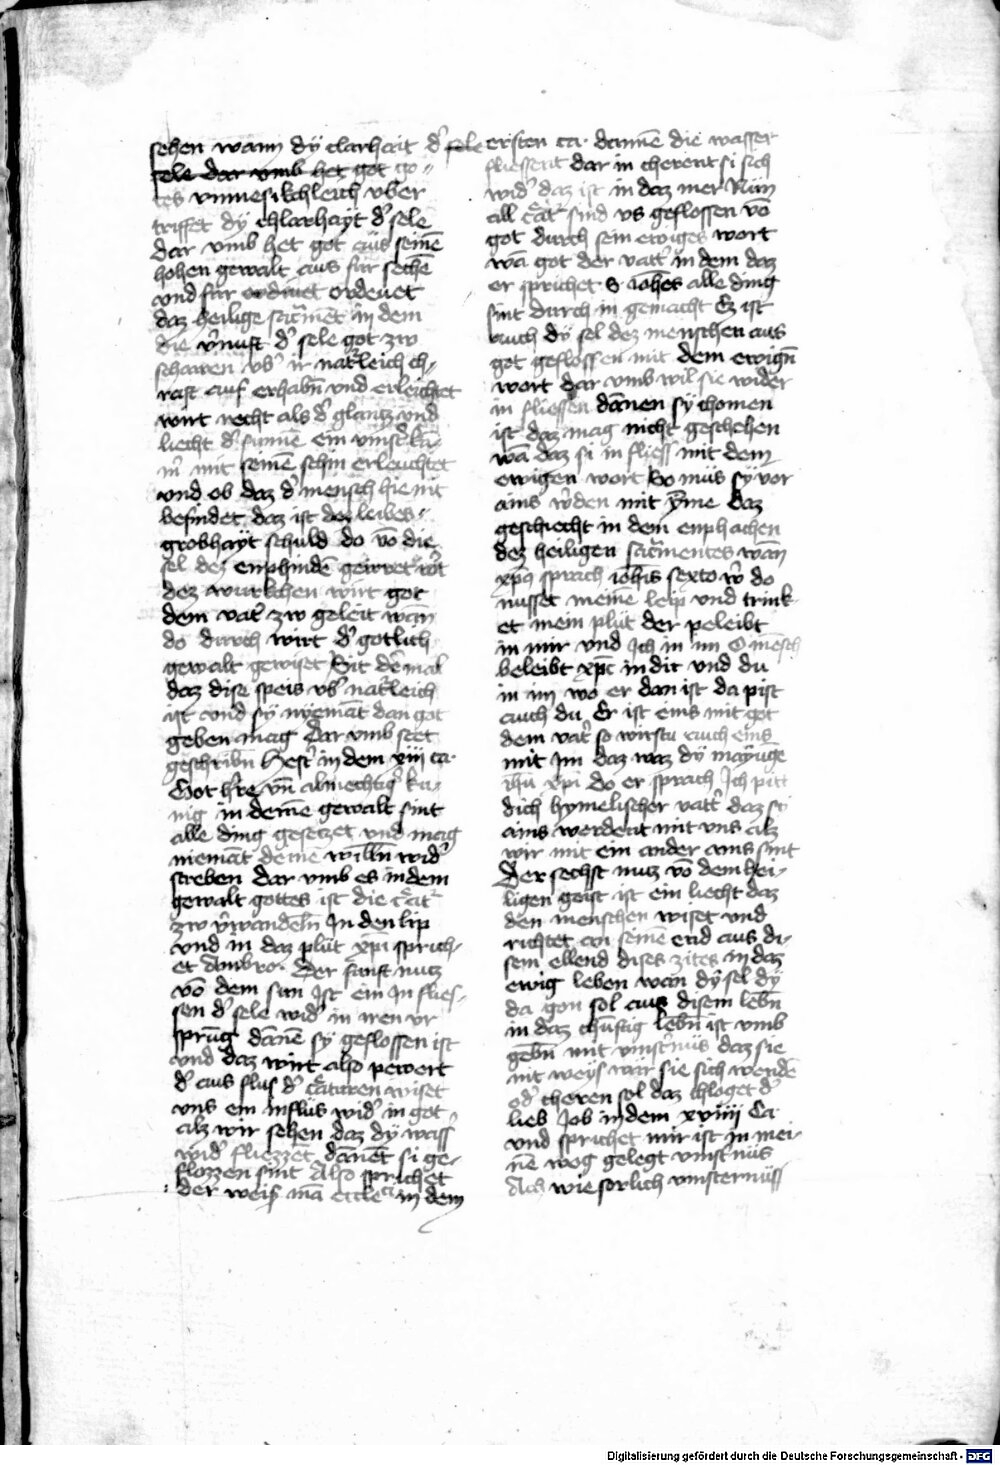 sehen wann dÿ clarhait d' sele
sele dar vmb het got go„
tes vnmesikchleich vber
triffet dÿ chlarhaÿt d' sele
dar vmb het got aüs seinē
hohen gewalt aus für sechē
vnd für ordnuet ordenet
daz heilige sac̄mēt in dem
die v'nuft d' sele got zw
schawen vb' ir nat'leich ch„
raft auf erhabn̄ vnd erleichtet
wirt recht als d' glantz vnd
liecht d' sunnē ein vinst' kā„
m' mit seinē schin erleuchtet
vnd ob daz d' mensch hie nit
befindet daz ist dez leibes„
grobhaÿt schuld do vō die
sel dez enphindē geirret w't
dez wurkchen wirt got
dem vat' zw geleit wān
do durch wirt d' gotlich
gewalt gewiset Sit dē mal
daz dise speis vb' nat'leich
ist vnd sÿ nÿemāt dan got
geben mag Dar vmb stet
geschribn̄ Hest' in dem xiii ca·
Got h're vn̄ almechtig' kü„
nig in deinē gewalt sint
alle ding gesetzet vnd mag
niemāt deinē willn̄ wid'
streben dar vmb es in dem
gewalt gottes ist die c̄at'
zw v'wandeln̄ In den lip
vnd in daz plüt xp̄i sprich„
et Ambro· Der funft nutz
vō dem sun Ist ein In flies„
sen d' sele wid' in iren vr
sprūg dānē sÿ geflossen ist
vnd daz wirt also pewert
d' aus flus d' c̄aturen wiset
vns ein influs wid' in got„
alz wir sehen daz dÿ wass'
wid' fliezzēt dānēt si ge„
flozzen sint Also sprichet
der weis mā eccleci in dem
ersten ca· dannē die wasser
fliessent dar in cherent si sich
wid' daz ist in daz mer Nün
all c̄at' sind vs geflossen vō
got durch sein ewiges wort
wā got der vatt' in dem daz
er sprichet S iohēs alle ding
sint durch in gemacht Ez ist
auch dÿ sel dez menschen aus
got geflossen mit dem ewign̄
wort dar vmb wil sie wider
in fliessen dānnen sÿ chomen
ist daz mag nicht geschehen
wā daz si in fliess mit dem
ewigen wort so müs sÿ vor
ains w'den mit ÿme daz
geschiecht in dem enphachen
dez heiligen sac̄mentes wān
xp̄s sprach ioh̄is sexto w' do
nusset meine leip vnd trink
et mein plüt der peleibt
in mir vnd Ich in im O mēsch
beleibt xp̄c in dir vnd du
in im wo er dan ist da pist
auch du Er ist eins mit got
dem vat' so wirstu auch eins
mit Im daz waz dÿ maÿnūge
ih̄u xp̄i do er sprach Ich pitt
dich hymelischer vatt' daz sÿ
ains werdent mit vns alz
wir mit ein ander ains sint
Der sechst nutz vō dem hei„
ligen geist ist ein liecht daz
den menschen wiset vnd
richtet an seinē end aus di„
sem ellend dises zites in daz
ewig leben wan dÿ sel dÿ
da gon sol aus disem lebn̄
in daz chunftig lebn̄ ist vmb
gebn̄ mit vinst'nüs daz sie
nit weÿs war sie sich wendē
od' cheren sol daz chloget d'
lieb Iob in dem xviiii Ca
vnd sprichet mir ist in mei„
nē weg gelegt vinst'nüs
Ach wie sorlich vinsternüss